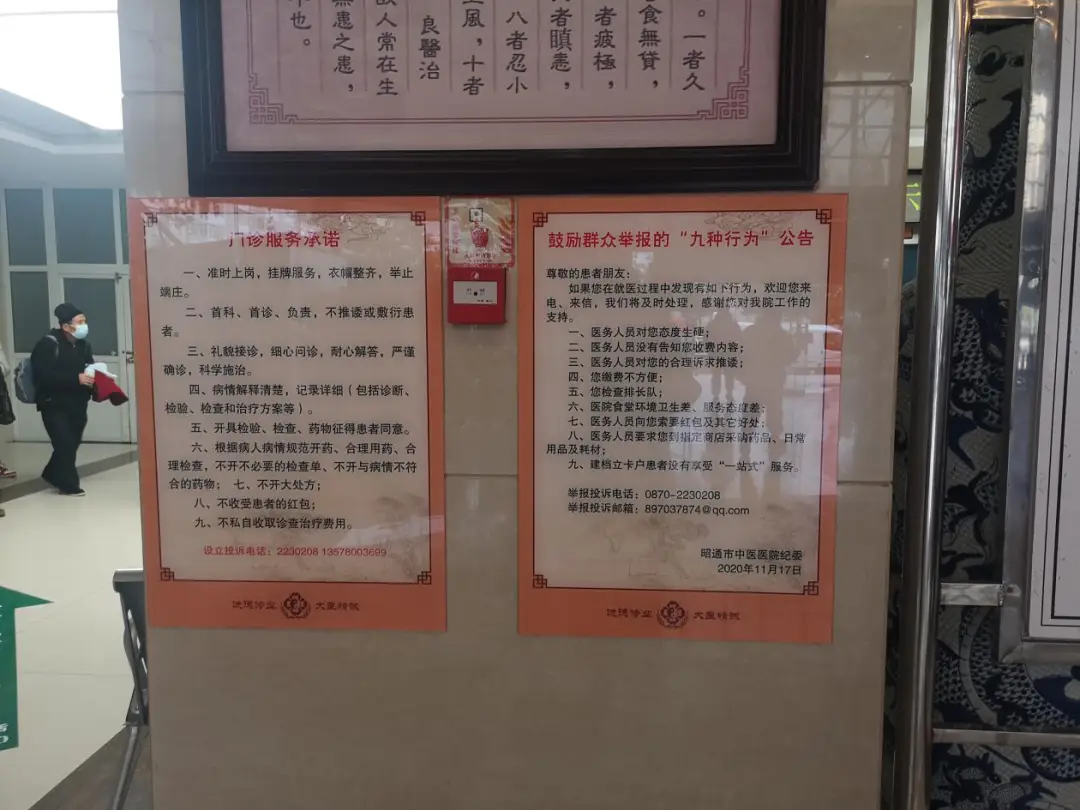 。一者久
食無貸，
者疲極，
者瞋恚，
八者忍小
風，十者
良醫治
故人常在生
無患之患，
也。
门诊服务承诺
一、准时上岗，挂牌服务，衣帽整齐，举止
端庄。
二、首科、首诊、负责，不推诿或敷衍患
者。
三、礼貌接诊，细心问诊，耐心解答，严谨
确诊，科学施治。
四、病情解释清楚，记录详细（包括诊断、
检验、检查和治疗方案等）。
五、开具检验、检查、药物征得患者同意。
六、根据病人病情规范开药、合理用药、合
理检查，不开不必要的检查单、不开与病情不符
合的药物； 七、不开大处方；
八、不收受患者的红包；
九、不私自收取诊查治疗费用。
设立投诉电话：2230208 13578003699
进德修业 大医精诚
鼓励群众举报的“九种行为”公告
尊敬的患者朋友：
如果您在就医过程中发现有如下行为，欢迎您来
电、来信，我们将及时处理，感谢您对我院工作的
支持。
一、医务人员对您态度生硬；
二、医务人员没有告知您收费内容；
三、医务人员对您的合理诉求推诿；
四、您缴费不方便；
五、您检查排长队；
六、医院食堂环境卫生差、服务态度差；
七、医务人员向您索要红包及其它好处；
八、医务人员要求您到指定商店采购药品、日常
用品及耗材；
九、建档立卡户患者没有享受“一站式”服务。
举报投诉电话：0870-2230208
举报投诉邮箱：897037874@qq.com
昭通市中医医院纪委
2020年11月17日
进德修业 大医精诚